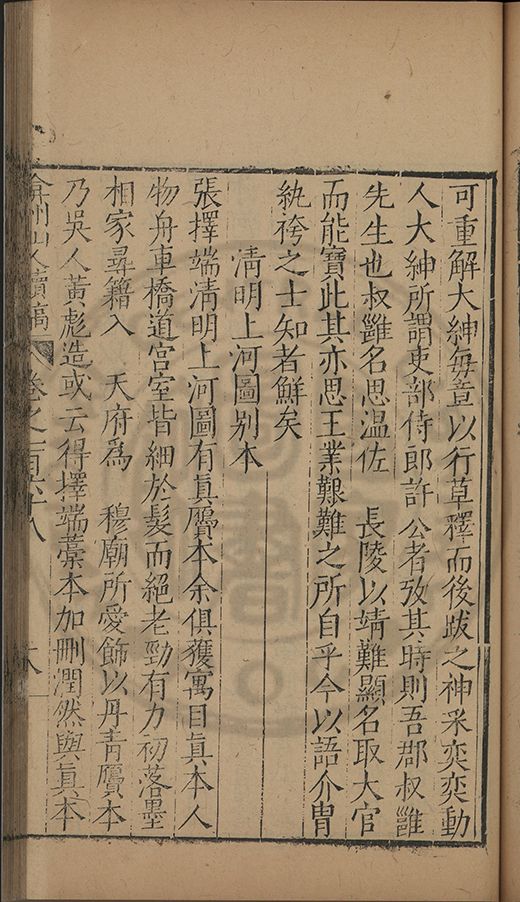 可重解大紳每章以行草釋而後跋之神采奕奕動
人大紳所謂吏部侍郎許 公者攷其時則吾郡叔雝
先生也叔雝名思温佐 長陵以靖難顯名取大官
而能寶此其亦思王業艱難之所自乎今以語介胄
紈袴之士知者鮮矣
清明上河圖别本
張擇端清明上河圖有眞贋本余俱獲寓目眞本人
物舟車橋道宫室皆細於髮而絕老勁有力初落墨
相家尋籍入 天府爲 穆廟所愛飾以丹青贋本
乃吳人黃彪造或云得擇端藁本加刪潤然與眞本
弇州山人續稿 卷之一百六十八